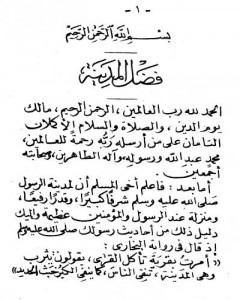 - ١ -
بسم الله الرحمن الرحيم
فضل المدينة
الحمد لله رب العالمين، الرحمن الرحيم، مالك
يوم الدين، والصلاة والسلام الأكملان
التامان على من أرسله ربه رحمة للعالمين،
محمد عبد الله ورسوله، وآله الطاهرين، وصحابته
أجمعين.
أما بعد: فاعلم أخي المسلم أن لمدينة الرسول
صلى الله عليه وسلم شرفا كبيرا، وقدرا رفيعا،
ومنزلة عند الرسول والمؤمنين عظيمة وإليك
دليل ذلك من أحاديث رسولك صلى الله عليه وسلم
إذ قال في رواية البخاري:
« أمرت بقرية تأكل القرى، يقولون: يثرب
وهي المدينة، تنفي الناس، كما ينفي الكير خبث الحديد »